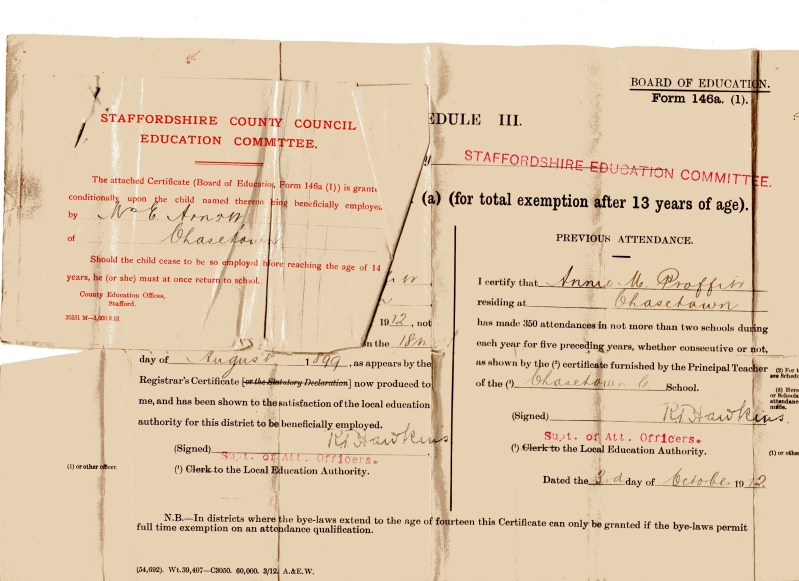 BOARD OF EDUCATION.
Form 146a. (1).
STAFFORDSHIRE COUNTY COUNCIL
EDUCATION COMMITTEE.
The attached Certificate (Board of Education, Form 146a (1)) is grante
conditionally upon the child named thereon being beneficially employed
by Mr E.
of Chasetown
Should the child cease to be so employed before reaching the age of 14
years, he (or she) must at once return to school.
County Education Offices,
Stafford.
EDULE III.
STAFFORDSHIRE EDUCATION COMMITTEE.
(a) (for total exemption after 13 years of age).
1912, not
n the 18th
day of August 1899, as appears by the
Registrar's Certificate [or the Statutory Declaration] now produced to
me, and has been shown to the satisfaction of the local education
authority for this district to be beneficially employed.
(Signed) RT Hawkins
Supt. of Att. Officers.
(1) or other officer.
(¹) Clerk to the Local Education Authority.
PREVIOUS ATTENDANCE.
I certify that Annie M. Proffitt
residing at Chasetown
has made 350 attendances in not more than two schools during
each year for five preceding years, whether consecutive or not,
as shown by the (²) certificate furnished by the Principal Teacher
of the (³) Chasetown C School.
(Signed) RT Hawkins.
Supt. of Att. Officers.
(¹) Clerk to the Local Education Authority.
Dated the 3rd day of October 1912.
(2) For t
are Sched
(3) Here
or Schools
attendanc
mitte.
(1) or othe
N.B.—In districts where the bye-laws extend to the age of fourteen this Certificate can only be granted if the bye-laws permit
full time exemption on an attendance qualification.
(54,692). Wt. 39,407—C3050. 60,000. 3/12. A.&E.W.